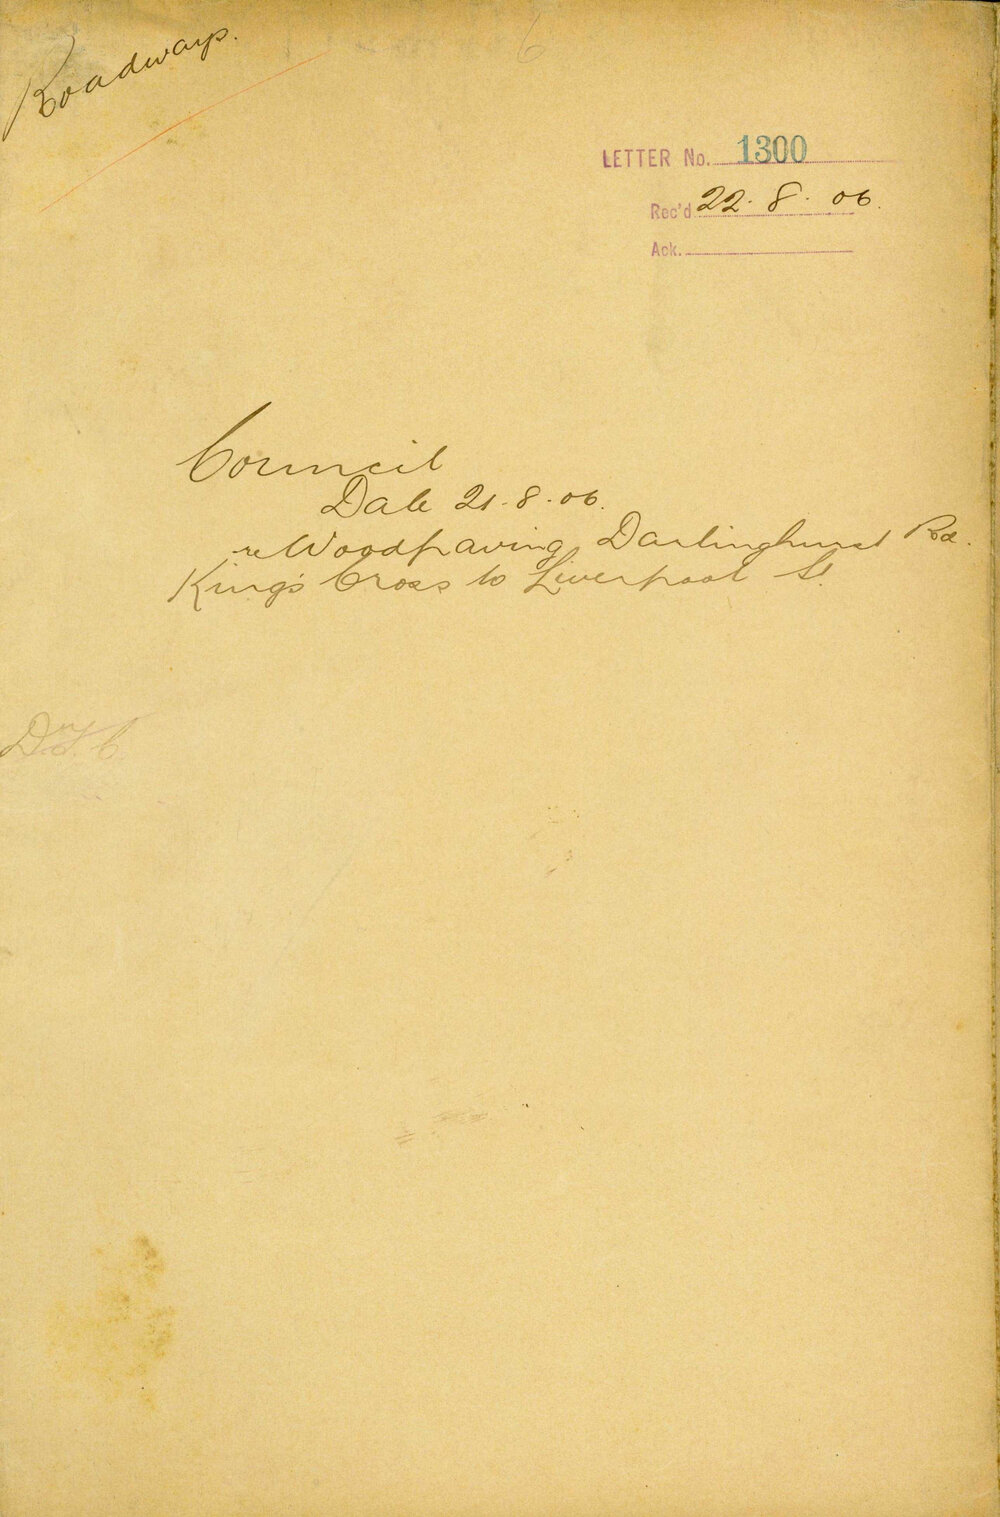 Roadways.
LETTER No. 1300
Rec'd 22. 8. 06.
Ack.
Council
Date 21. 8. 06.
re Woodpaving Darlinghurst Rd.
King's Cross to Liverpool St.